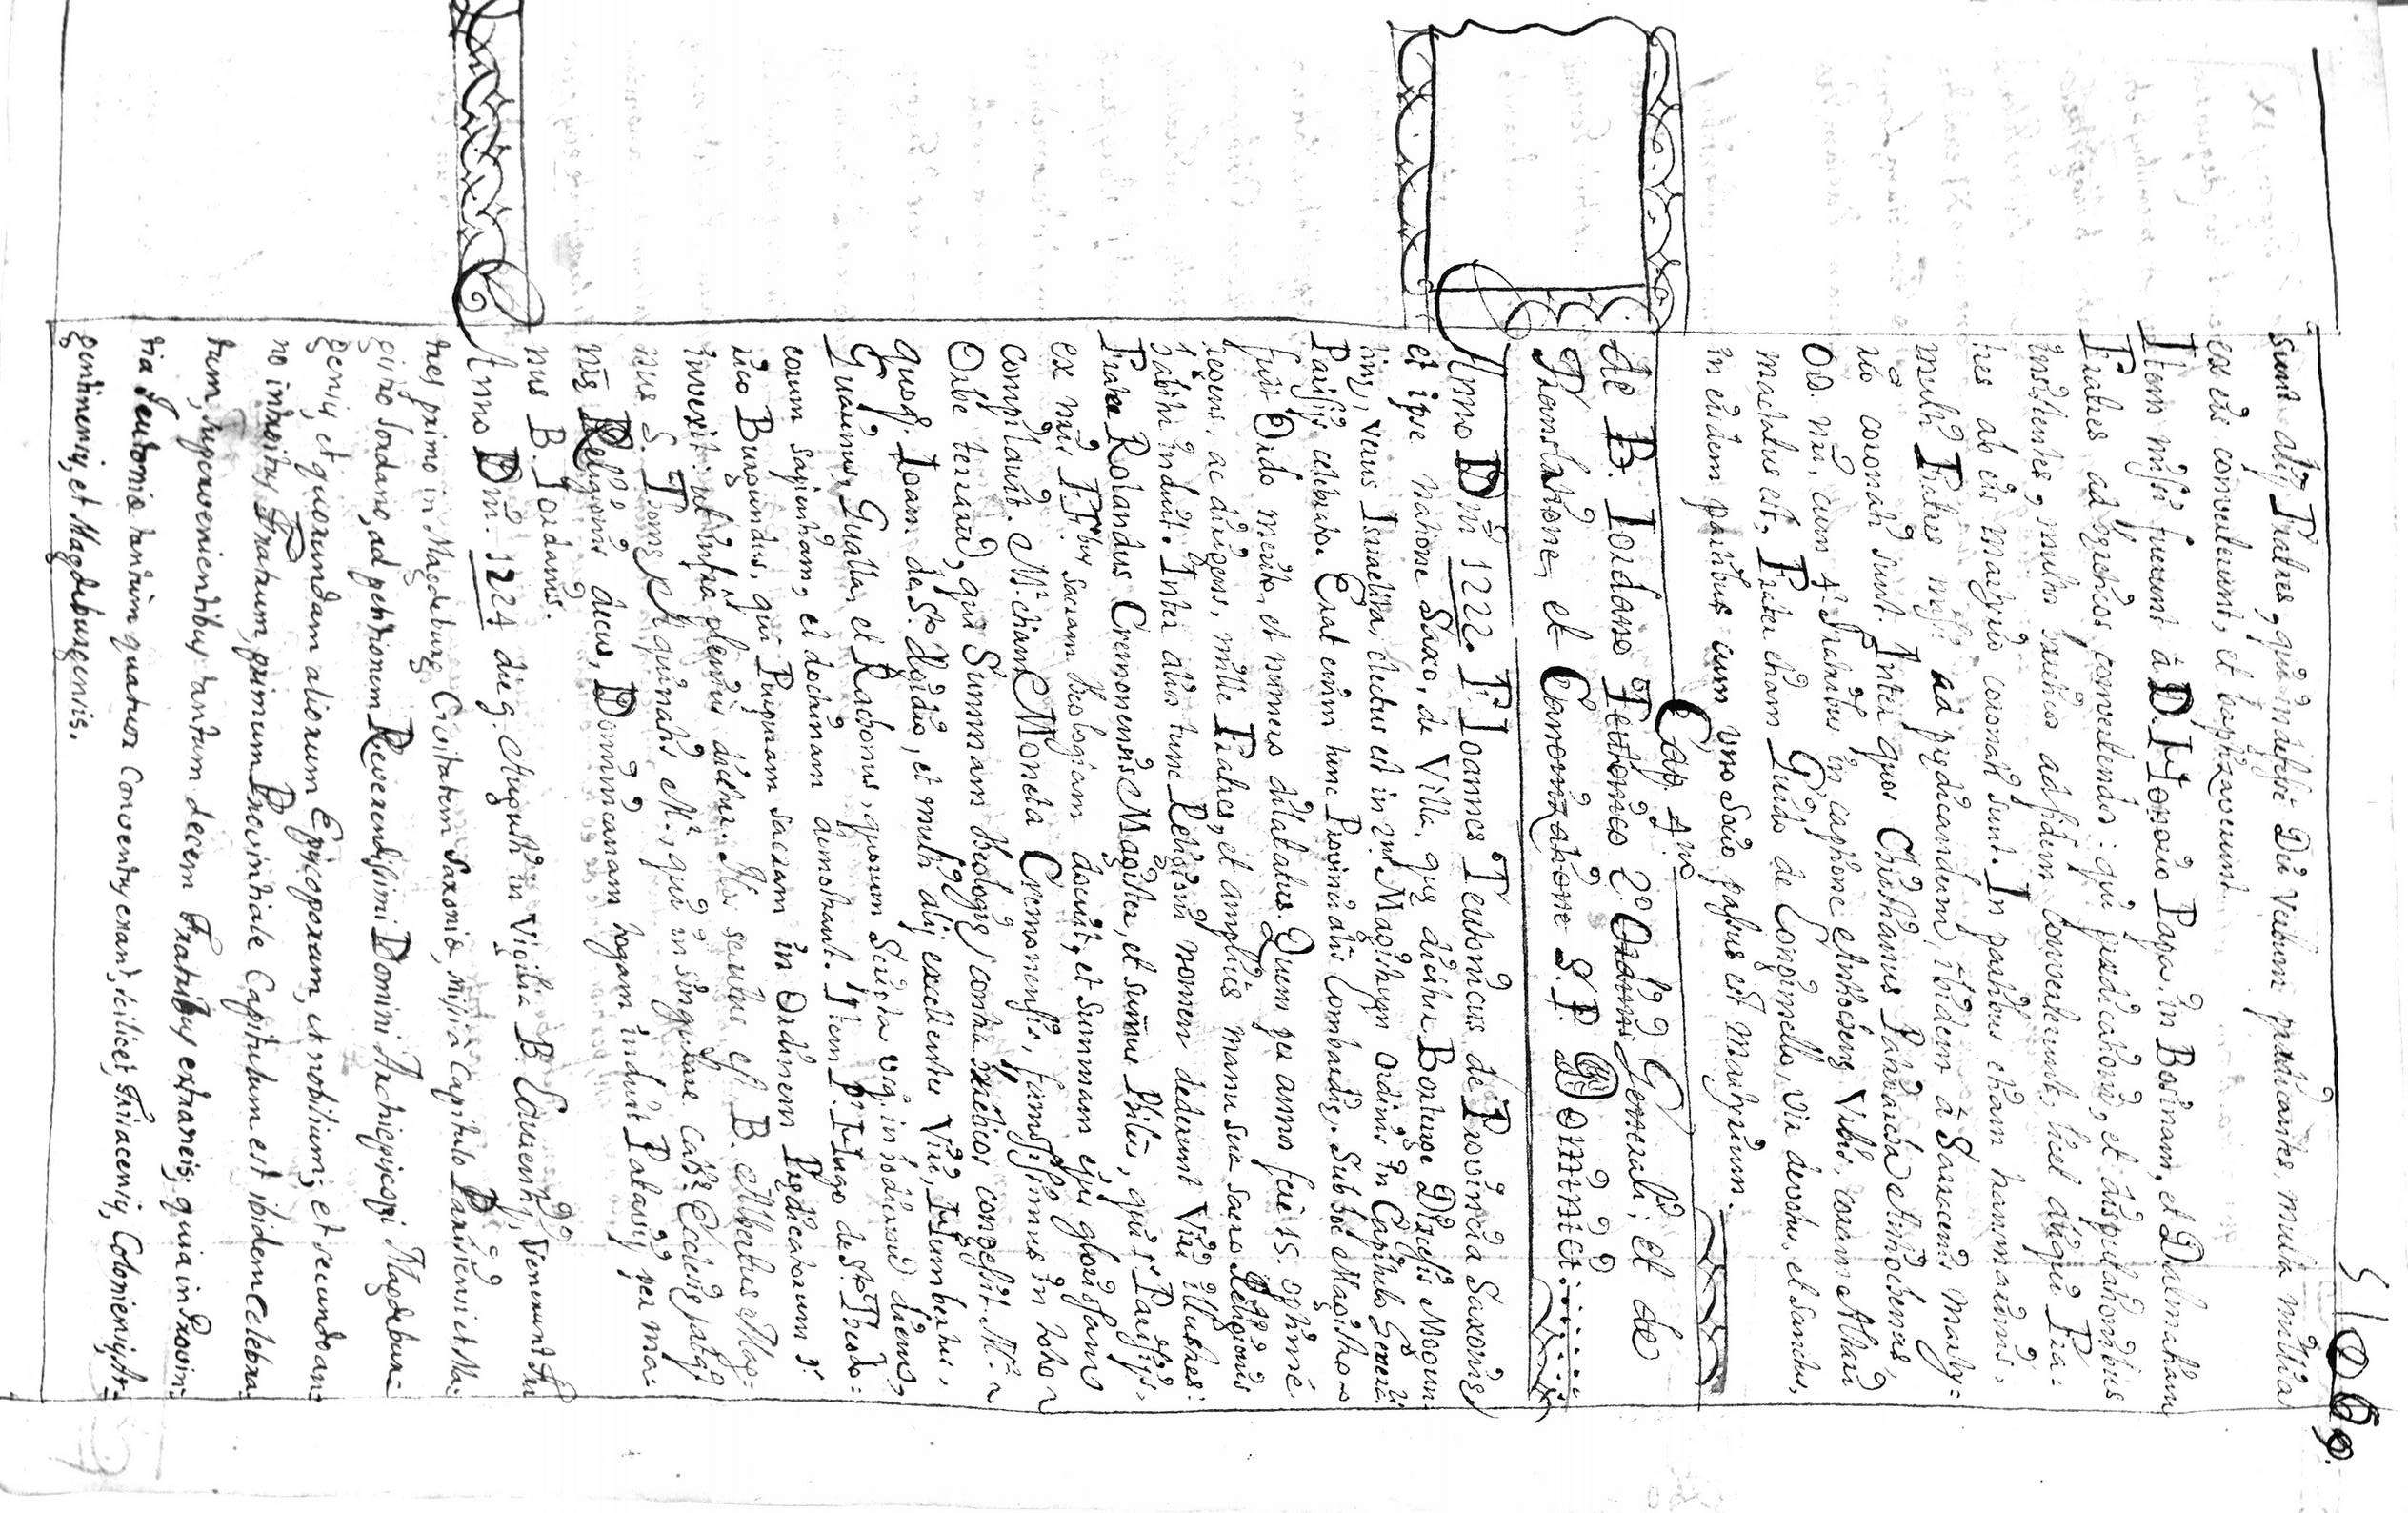 109.
sunt alij Fratres, qui indefessè Dei Verbum prædicantes multa millia
ex eis converterunt, et baptizaverunt.
Item missi fuerunt à D. Honorio Papa, in Bosinam, et Dalmatiam
Fratres ad hæreticos convertendos: qui prædicationi, et disputationibus
insistentes, multos hæreticos ad fidem converterunt, licet aliqui Fra-
tres ab eis martyrio coronati sunt. In partibus etiam transmarinis,
multi Fratres missi ad prædicandum, ibidem à Sarracenis marty-
rio coronati sunt. Inter quos Christianus Patriarcha Antiochenus,
Od. nri, cum 4 Fratribus in captione Antiochenæ Urbis, coram Altari
mactatus est. Frater etiam Guido de Longimello, vir devotus, et sanctus,
in eisdem partibus cum uno Socio passus est Martyrium.
Cap. 4um
de B. Iordano Teutonico 2o Ordinis Generali, et de
Translatione, et Canonizatione S. P. Dominici
Anno Dni 1222. F. Ioannes Teutonicus de Provincia Saxoniæ
et ipse natione Saxo, de Villa, quæ dicitur Borteme Diæcesis
verus Israelita, electus est in 2m Magistrum Ordinis in Capitulo Generali
Parisijs celebrato. Erat enim tunc Provincialis Lombardiæ. Sub hoc Magistro
fuit Ordo merito, et numero dilatatus. Quem per annos fere 15 optimè
regens, ac dirigens, mille Fratres, et amplius manu sua sacro Religionis
habitu induit. Inter alios tunc Religioni nomen dederunt Viri illustres:
Frater Rolandus Cremonensis Magister, et summus Philus, qui 1us Parisijs,
ex nris FFribus sacram theologiam docuit, et Summam ejus gloriosam
compilavit. Mr. etiam Moneta Cremonensis, famosissimus in toto
Orbe terrarum, qui Summam theologiæ contra hæreticos congessit. Mr.
quoq. Ioan. de Sto. Ægidio, et multi alij excellentes Viri, Humbertus,
Guarinus, Gualla, et Rachonus, quorum Scripta usq. in hodiernum diem,
eorum sapientiam, et doctrinam demonstrant. Item Fr. Hugo de Sto. Theodo-
rico Burgundus, qui Purpuram sacram in Ordinem Prædicatorum 1us
invexit: ut infra plenius dicetur. Hos secutus est B. Albertus Mag-
nus S. Thomæ Aquinatis Mr., qui in singulare Cathæ. Ecclesiæ, totiusq.
nræ Religionis decus, Dominicanam togam induit Patavij per ma-
nus B. Iordanis.
Anno Dni. 1224 die 9. Augusti in Vigilia B. Laurentij, Venerunt Fra-
tres primo in Magdeburg. Civitatem Saxoniæ, missi à Capitulo Parisiensi et Ma-
gistro Iordano, ad petitionem Reverendissimi Domini Archiepiscopi Magdebur-
gensis, et quorundam aliorum Episcoporum, et nobilium; et secundo an-
no introitus Fratrum, primum Provinciale Capitulum est ibidem celebra-
tum, supervenientibus tantum decem Fratribus extraneis; quia in Provin-
tia Teutoniæ tantum quatuor Conventus erant, scilicet, Frisacensis, Coloniensis, Ar-
gentinensis, et Magdeburgensis.